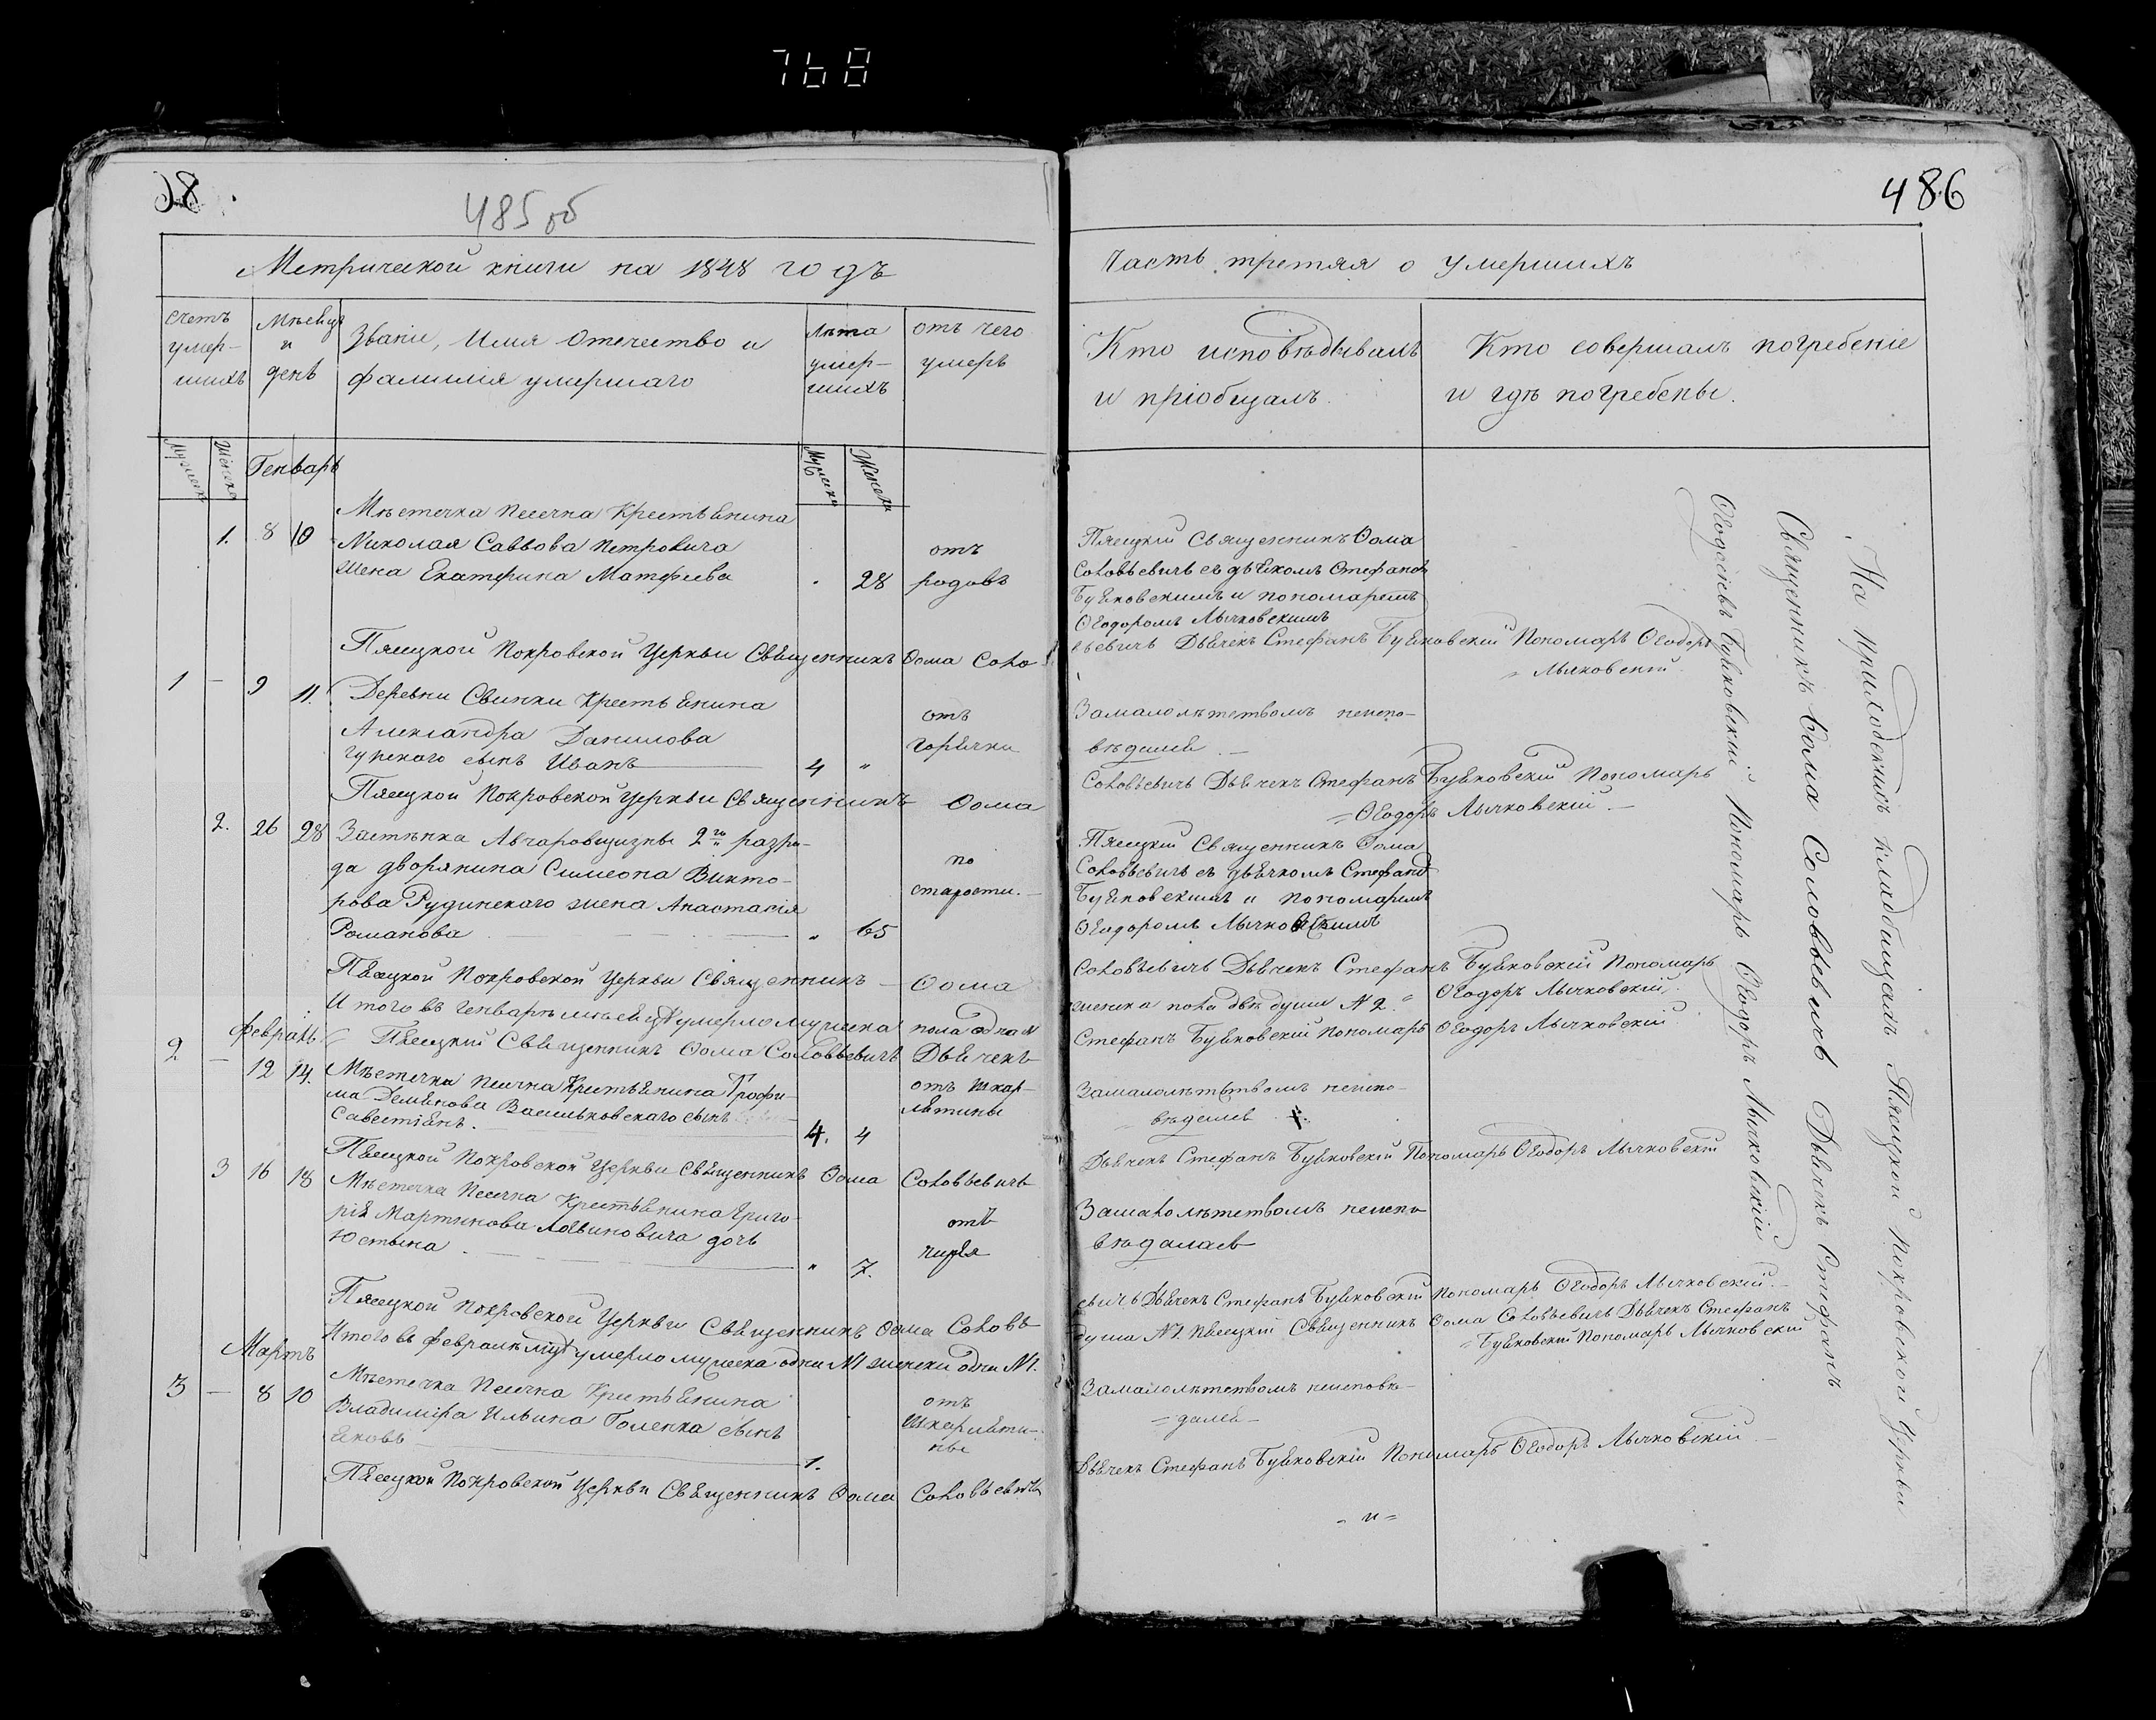 768
485 об
486
Метрической книги на 1848 годъ
Часть третяя о умершихъ
Счетъ умер-
шихъ
Мѣсяцъ
и
день
Званіе, Имя Отечество и
фамилія умершаго
Лѣта
умер-
шихъ
отъ чего
умеръ
Кто исповѣдывалъ
и пріобщалъ.
Кто совершалъ погребеніе
и гдѣ погребены.
Генварь
1. 8 10
Мѣстечка Песечна Крестьянина
Николая Саввова Петровича
жена Екатерина Матфеева
28
отъ
родовъ
Пясецкій Священникъ Ѳома
Соловьевичъ съ дьякомъ Стефаномъ
Буяковскимъ и пономаремъ
Ѳеодоромъ Лычковскимъ
Пясецкой Покровской Церкви Священникъ Ѳома Соло
вьевичъ Дьячекъ Стефанъ Буяковскій Пономарь Ѳеодоръ
Лычковскій.
1 — 9 11.
Деревни Свинки Крестьянина
Александра Данилова
Гурского сынъ Иванъ
4 "
отъ
горячки
Замалолѣтствомъ неиспо-
вѣдался. —
Пясецкой Покровской Церкви Священникъ Ѳома
Соловьевичъ Дьячекъ Стефанъ Буяковскій Пономарь
= Ѳеодоръ Лычковскій. —
2. 26 28
Застѣнка Авчаровщизны 2го разря-
да дворянина Симеона Викто-
рова Рудинского жена Анастасія
Романова
" 65
по
старости. —
Пясецкій Священникъ Ѳома
Соловьевичъ съ дьячкомъ Стефаномъ
Буяковскимъ и пономаремъ
Ѳеодоромъ Лычковскимъ
Пясецкой Покровской Церкви Священникъ — Ѳома
Соловьевичъ Дьячекъ Стефанъ Буяковскій Пономарь
Ѳеодоръ Лычковскій.
Итого въ генварѣ мѣсяцѣ умерло мужеска пола одна
женска пола двѣ души № 2.
Пясецкій Священникъ Ѳома Соловьевичъ Дьячекъ
Стефанъ Буяковскій Пономарь Ѳеодоръ Лычковскій
Февраль
2 — 12 14.
Мѣстечка Песечна Крестьянина Трофи-
ма Демьянова Васильковскаго сынъ
Савестіянъ.
4. 4
отъ шкар-
лятины
Замалолѣтствомъ неиспо-
вѣдался
Пясецкой Покровской Церкви Священникъ Ѳома Соловьевичъ
Дьячекъ Стефанъ Буяковскій Пономарь Ѳеодоръ Лычковскій
3 16 18
Мѣстечка Песечна Крестьянина Григо-
рія Мартинова Лозвиновича дочь
Юстына
" 7.
отъ
чирья
Замалолѣтствомъ неиспо
вѣдалась
Пясецкой Покровской Церкви Священникъ Ѳома Соловь
евичъ Дьячекъ Стефанъ Буяковскій Пономарь Ѳеодоръ Лычковскій. —
Итого въ февралѣ мцѣ умерло мужеска одна №1 женска одна №1.
душа №1. Пясецкій Священникъ Ѳома Соловьевичъ Дьячекъ Стефанъ
= Буяковскій Пономарь Лычковскій
Мартъ
3 — 8 10
Мѣстечка Песечна Крестьянина
Владиміра Ильина Голенка сынъ
Яковъ
1.
отъ
шкарляти-
ны
Замалолѣтствомъ неисповѣ-
= дался —
Пясецкой Покровской Церкви Священникъ Ѳома Соловьевичъ
Дьячекъ Стефанъ Буяковскій Пономарь Ѳеодоръ Лычковскій —
- и =
На приходскихъ кладбищахъ Пясецкой Покровской Церкви
Священникъ Ѳома Соловьевичъ Дьячекъ Стефанъ
Буяковскій Пономарь Ѳеодоръ Лычковскій